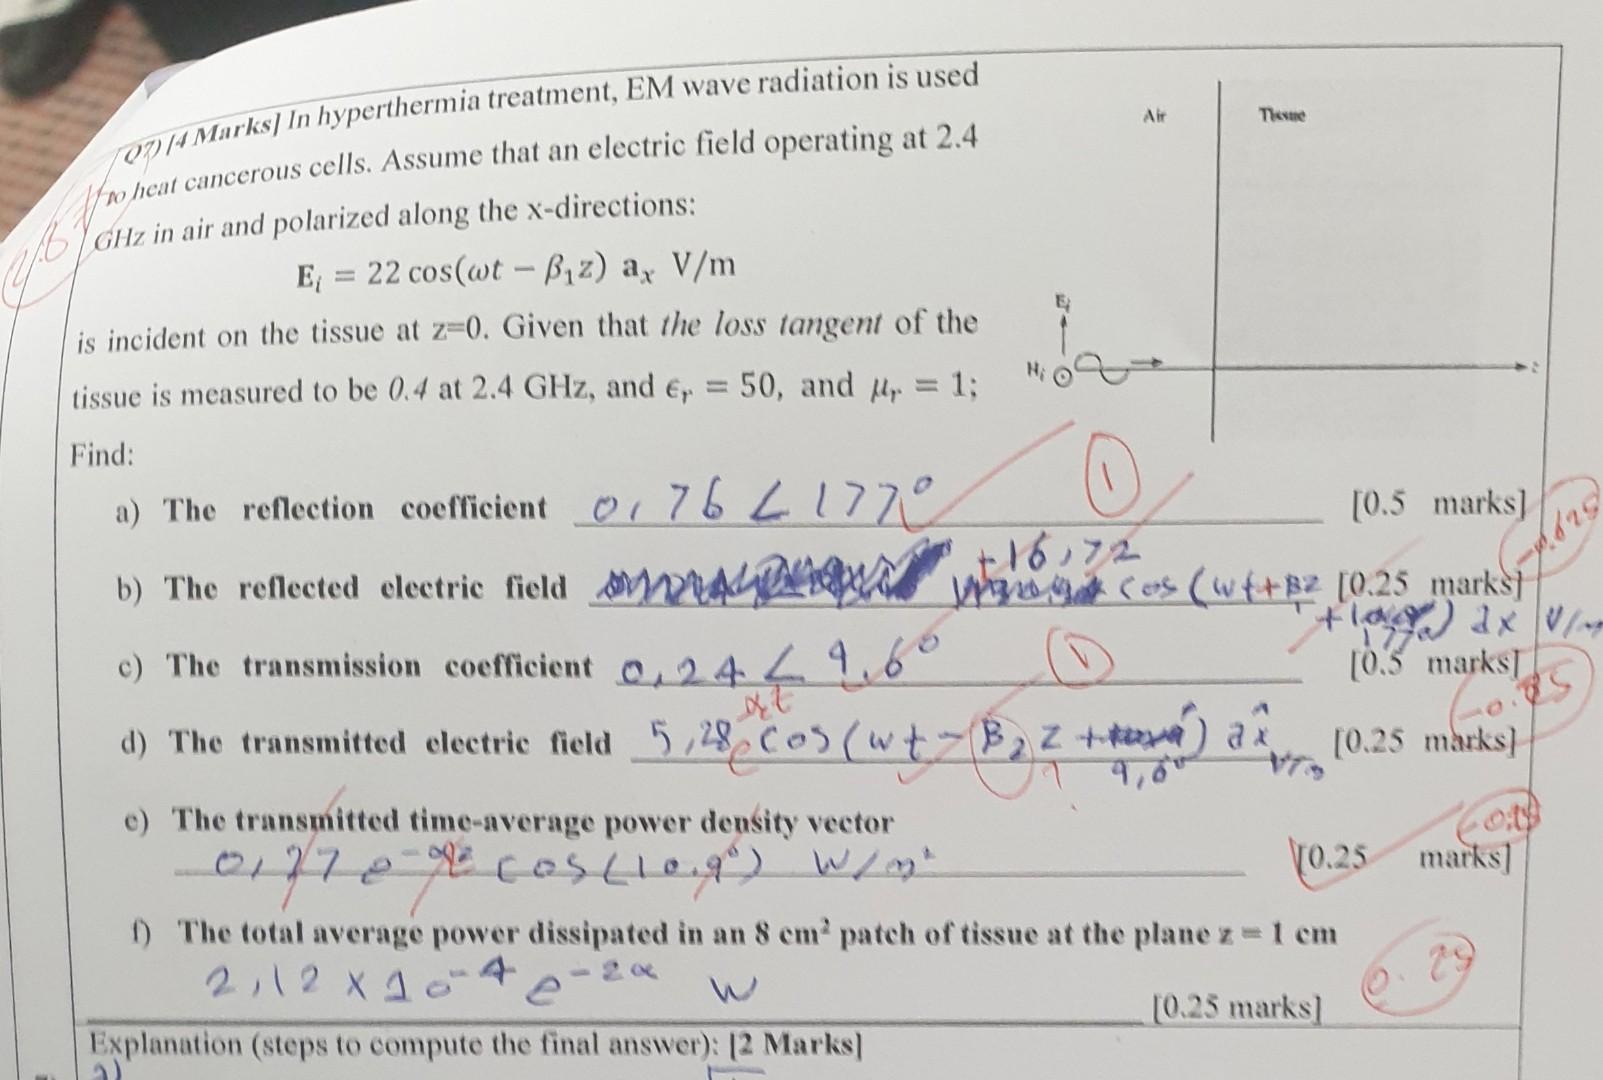 Q7) [4 Marks] In hyperthermia treatment, EM wave radiation is used
to heat cancerous cells. Assume that an electric field operating at 2.4
GHz in air and polarized along the x-directions:
E_i = 22 cos(ωt − β₁z) a_x V/m
is incident on the tissue at z=0. Given that the loss tangent of the
tissue is measured to be 0.4 at 2.4 GHz, and ϵ_r = 50, and μ_r = 1;
Find:
Air Tissue
E_i
H_i
z
a) The reflection coefficient 0,76 ∠ 177° [0.5 marks]
1
b) The reflected electric field +16,72 cos(wt+βz [0.25 marks]
177°) ax V/m
c) The transmission coefficient 0,24 ∠ 9.6° [0.5 marks]
d) The transmitted electric field 5,28 e cos(wt - β₂ z + 9,6°) ax V/m [0.25 marks]
?
e) The transmitted time-average power density vector
cos(10.9°) W/m² [0.25 marks]
f) The total average power dissipated in an 8 cm² patch of tissue at the plane z = 1 cm
2,12 x 10⁻⁴ e⁻²ᵅ W
0.25
[0.25 marks]
Explanation (steps to compute the final answer): [2 Marks]
a)